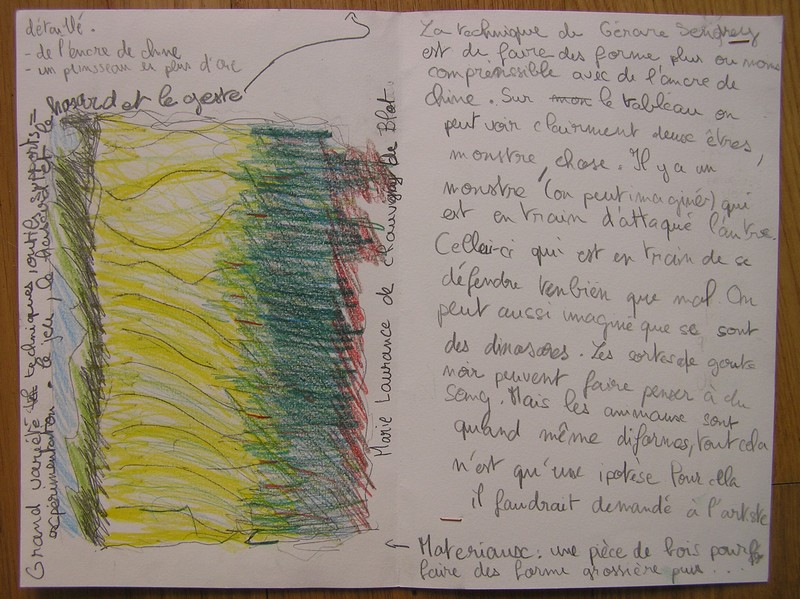 détaillé.
- de l'encre de chine
- un pinsseau en plus d'arc
hasard et le geste
Grand variété techniques, outils, supports =
expérimentation. le jeu, le hasard et le
Marie Laurance de Chauvigny de Blot
La technique de Gérare
est de faire des forme plus ou mons
compréhssible avec de l'ancre de
chine. Sur mon le tableau on
peut voir clairment deux êtres,
monstre, chose. Il y a un
monstre, (on peut imaginér) qui
est en train d'attaqué l'autre.
Celle-ci qui est en train de se
défendre tenbien que mal. On
peut aussi imaginé que se sont
des dinosores. Les sortes de gouts
noir peuvent faire penser à du
song. Mais les animmaux sont
quand même diformes, tout cela
n'est qu'une ipotese Pour cela
il faudrait demandé à l'artiste
Materiaux : une pièce de bois pour
faire des forme grossière puis ...